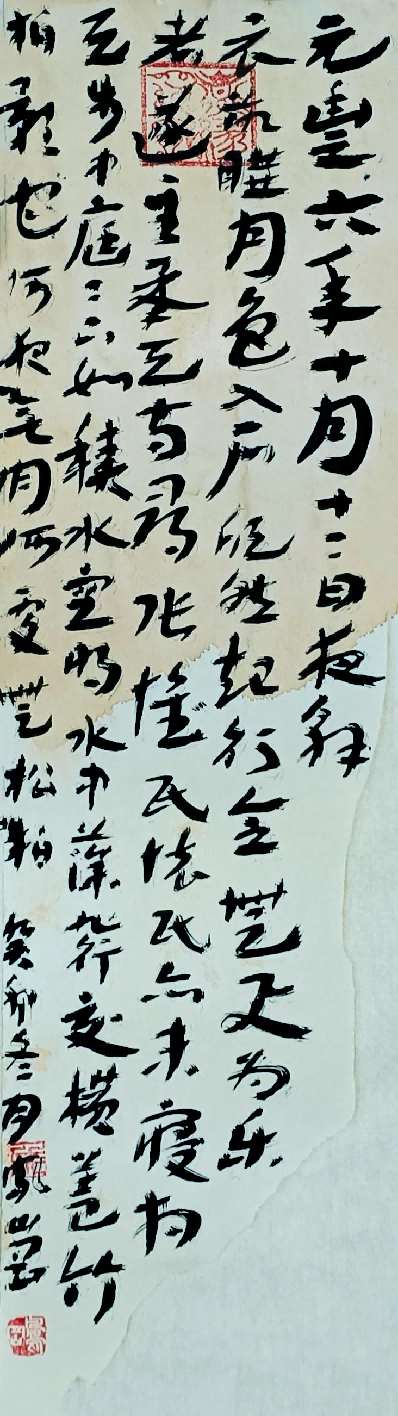 元豐六年十月十二日夜解
衣欲睡月色入戶欣然起行念無与为乐
者遂至承天寺尋张懷民懷民亦未寢相
与步中庭〻下如積水空明水中藻荇交橫蓋竹
柏影也何夜無月何處無松柏 癸卯冬月